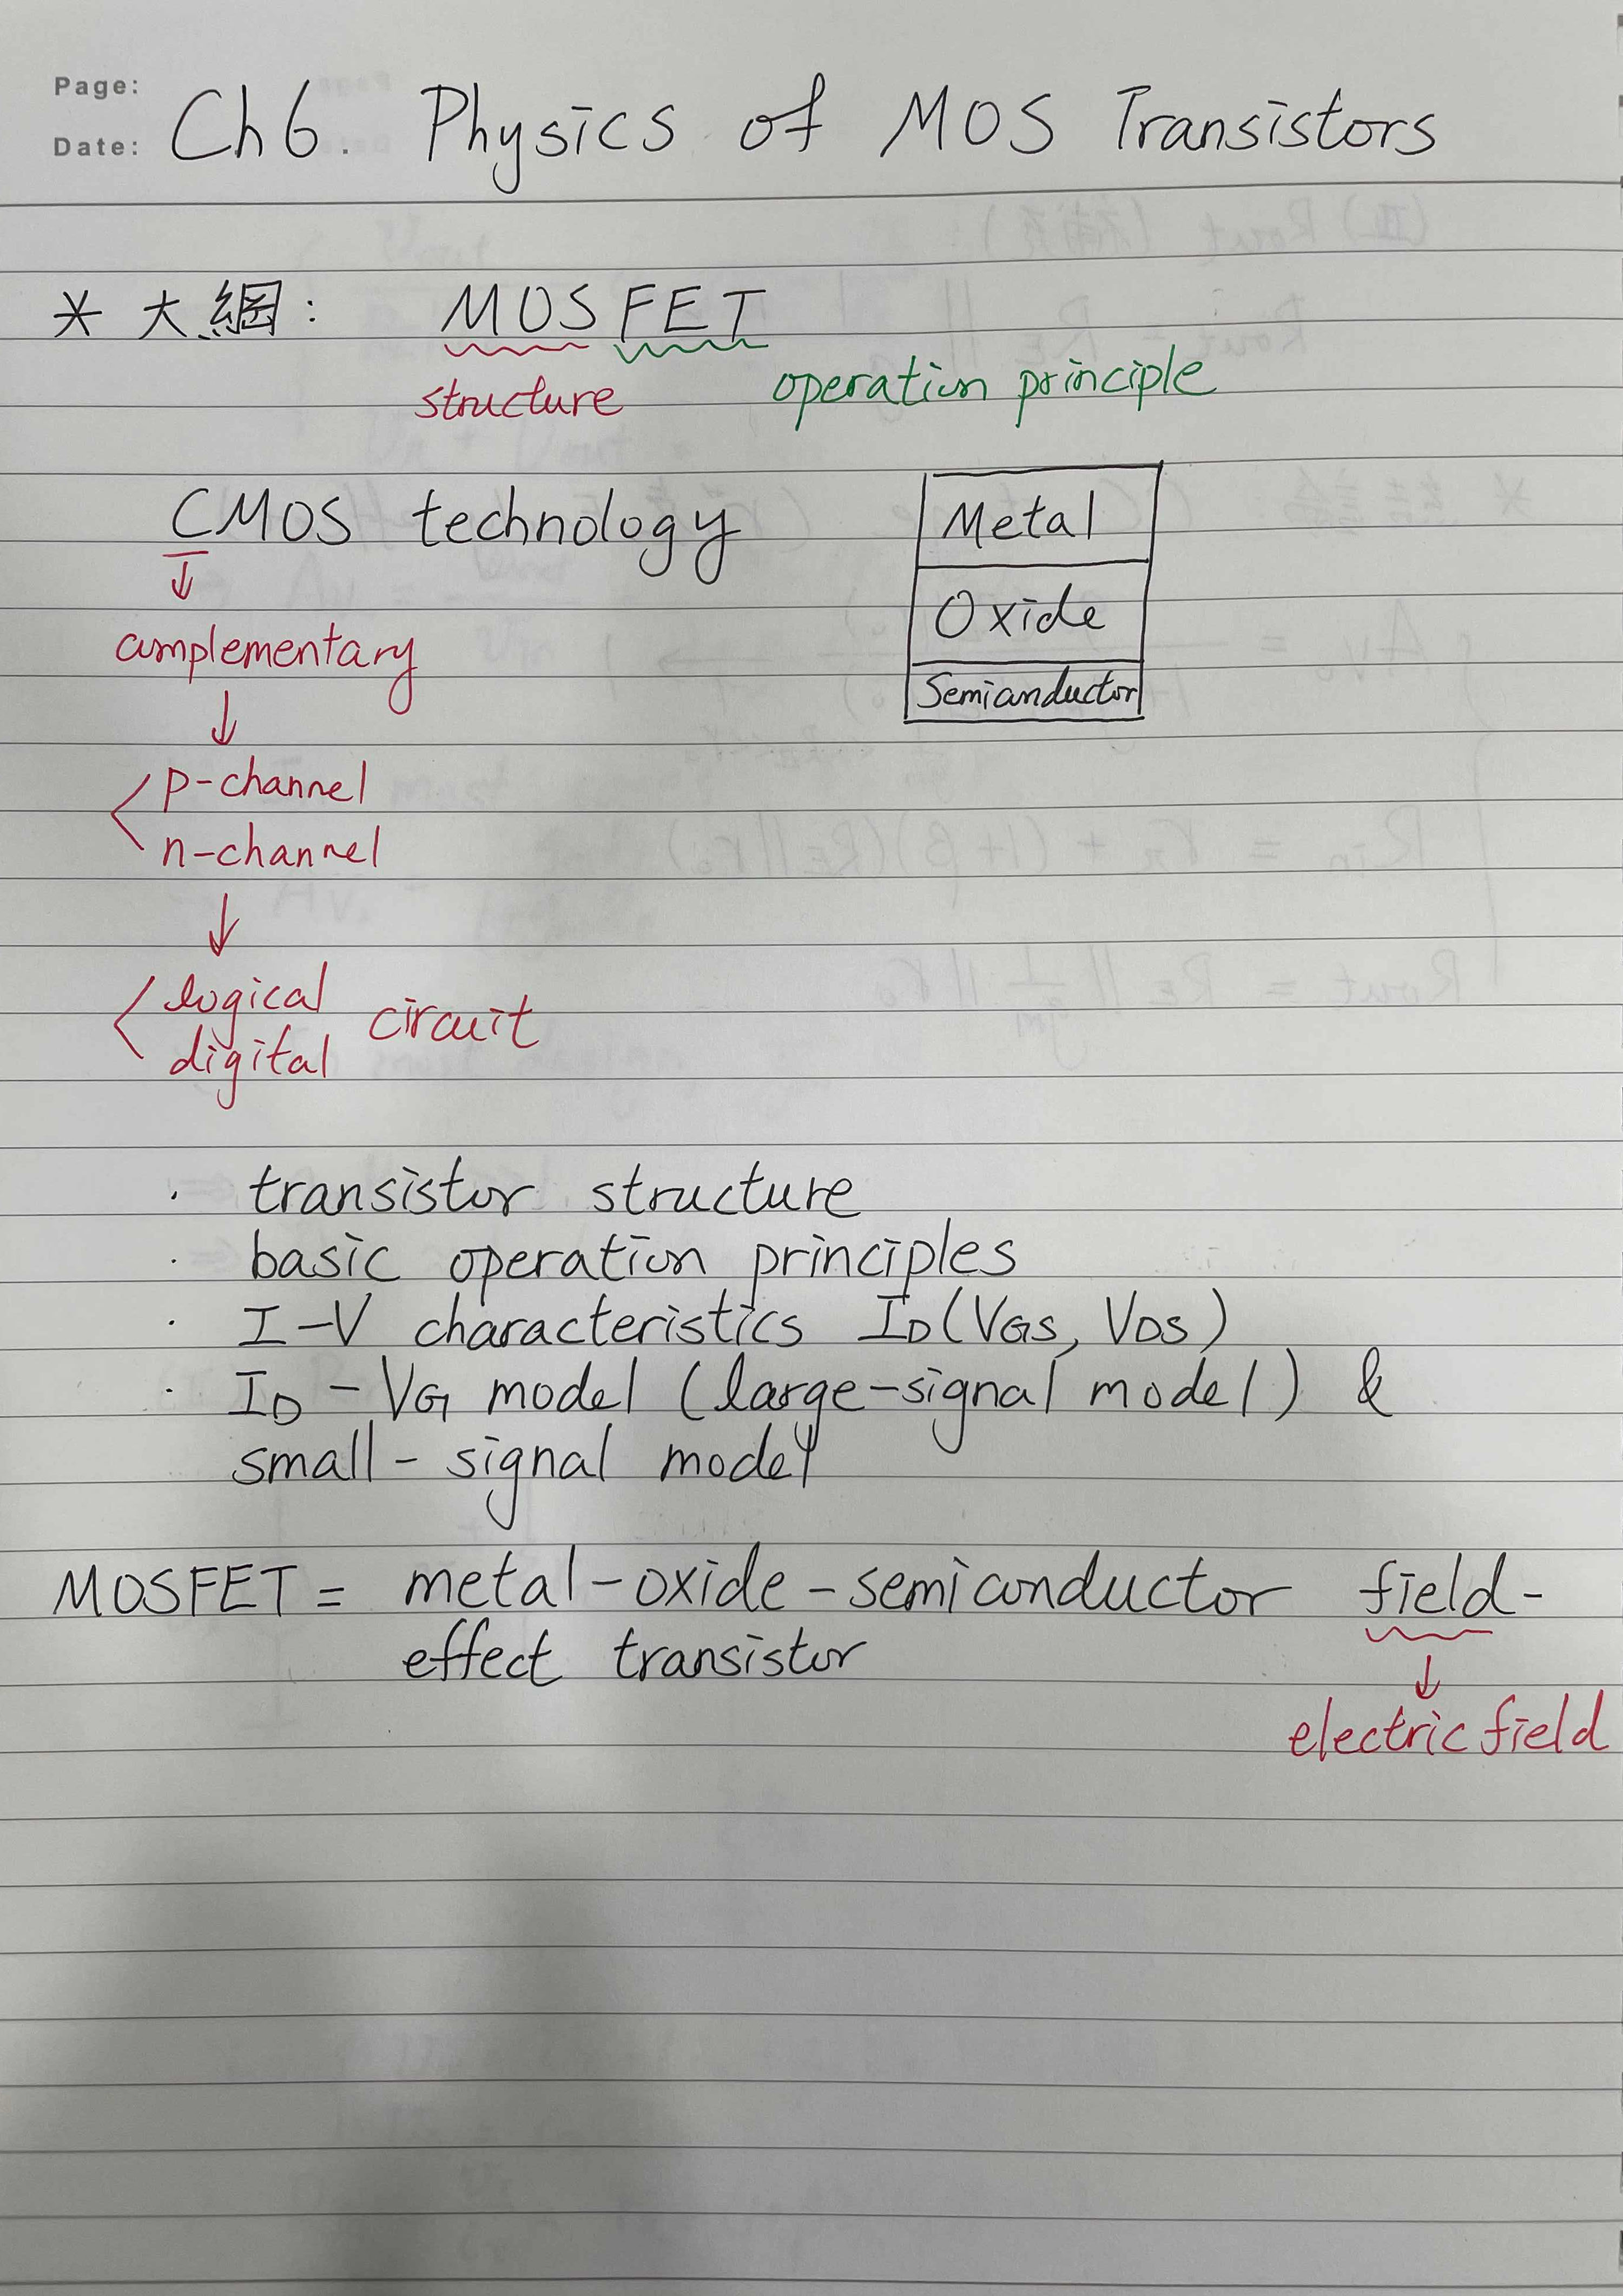 Page:
Date:
Ch6. Physics of MOS Transistors
* 大綱: MOSFET
structure
operation principle
CMOS technology
complementary
p-channel
n-channel
logical
digital
circuit
Metal
Oxide
Semiconductor
· transistor structure
· basic operation principles
· I-V characteristics ID(VGS, VDS)
· ID - VG model (large-signal model) &
small-signal model
MOSFET = metal-oxide-semiconductor field-
effect transistor
electric field